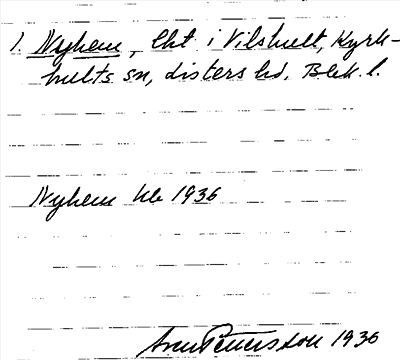 1. Nyhem, lht i Vilshult, Kyrk-
hults sn, Listers hd, Blek. l.
Nyhem 1936
Pettersson 1936